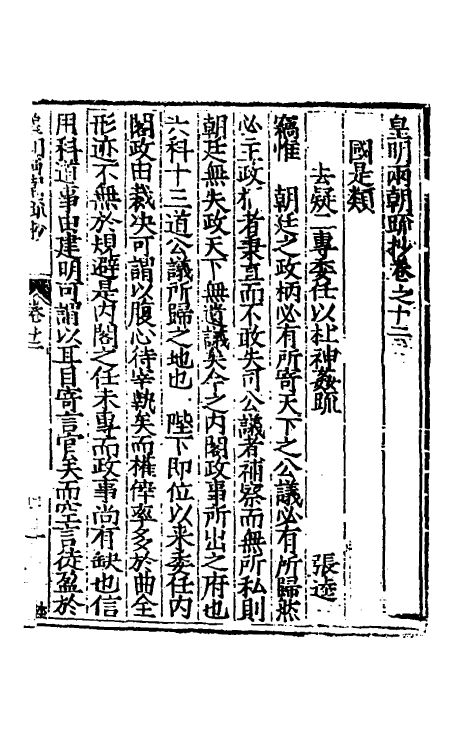 皇明兩朝疏抄卷之十二
國是類
去疑二專委任以杜神姦疏 張逵
竊惟 朝廷之政柄必有所寄天下之公議必有所歸然
必主政柄者秉直而不敢失司公議者補察而無所私則
朝廷無失政天下無遺議矣今之内閣政事所出之府也
六科十三道公議所歸之地也 陛下即位以來委任内
閣政由裁决可謂以腹心待宰執矣而權倖率多於曲全
形迹不無於規避是内閣之任未專而政事尚有缺也信
用科道事由建明可謂以耳目寄言官矣而空言徒盈於
皇明兩朝疏抄 卷十二